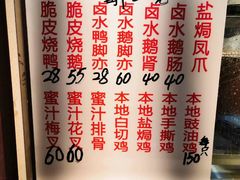 脆皮烧鸭
28
脆皮烧鹅
55
卤水鸭脚亦
28
卤水鹅脚亦
60
卤水鹅肾
40
卤水鹅肠
40
盐焗凤爪
蜜汁梅叉
60
蜜汁花叉
60
蜜汁排骨
本地白切鸡
本地盐焗鸡
本地手撕鸡
本地豉油鸡
150